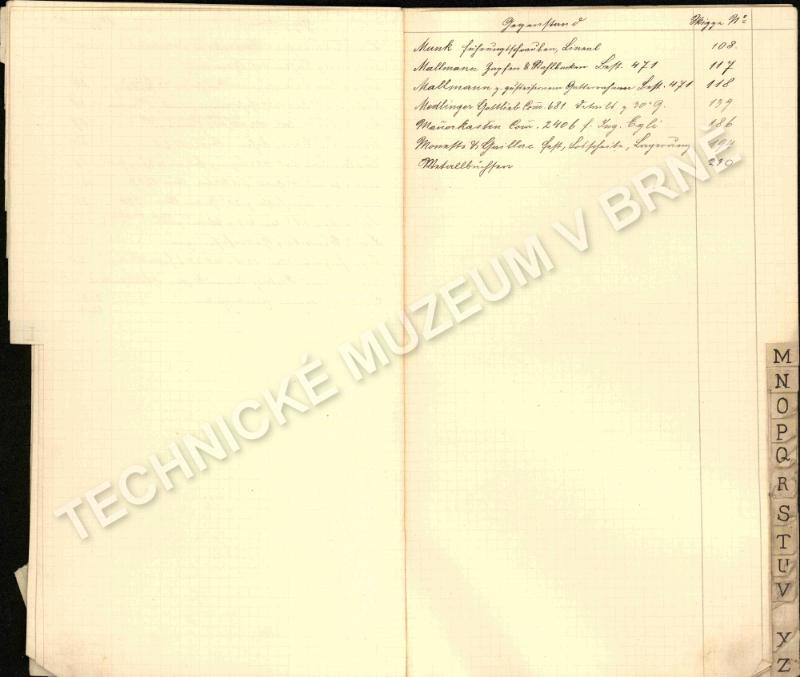 Gegenstand Skizze No
Munk Führungsschrauben, Lineal 108.
Mallmann Zapfen & Stahlbacken Best. 471 117
Mallmann z. gusseisernem Gatterrahmen Best. 471 118
Medlinger Gottlieb Com. 681 Detail z 30" G. 139
Mauerkasten Com. 2406 f. Ing. Egli 186
Monetto & Gaillac Lagerung
Metallbüchsen 290
TECHNICKÉ MUZEUM V BRNĚ
M
N
O
P
Q
R
S
T
U
V
X
Y
Z